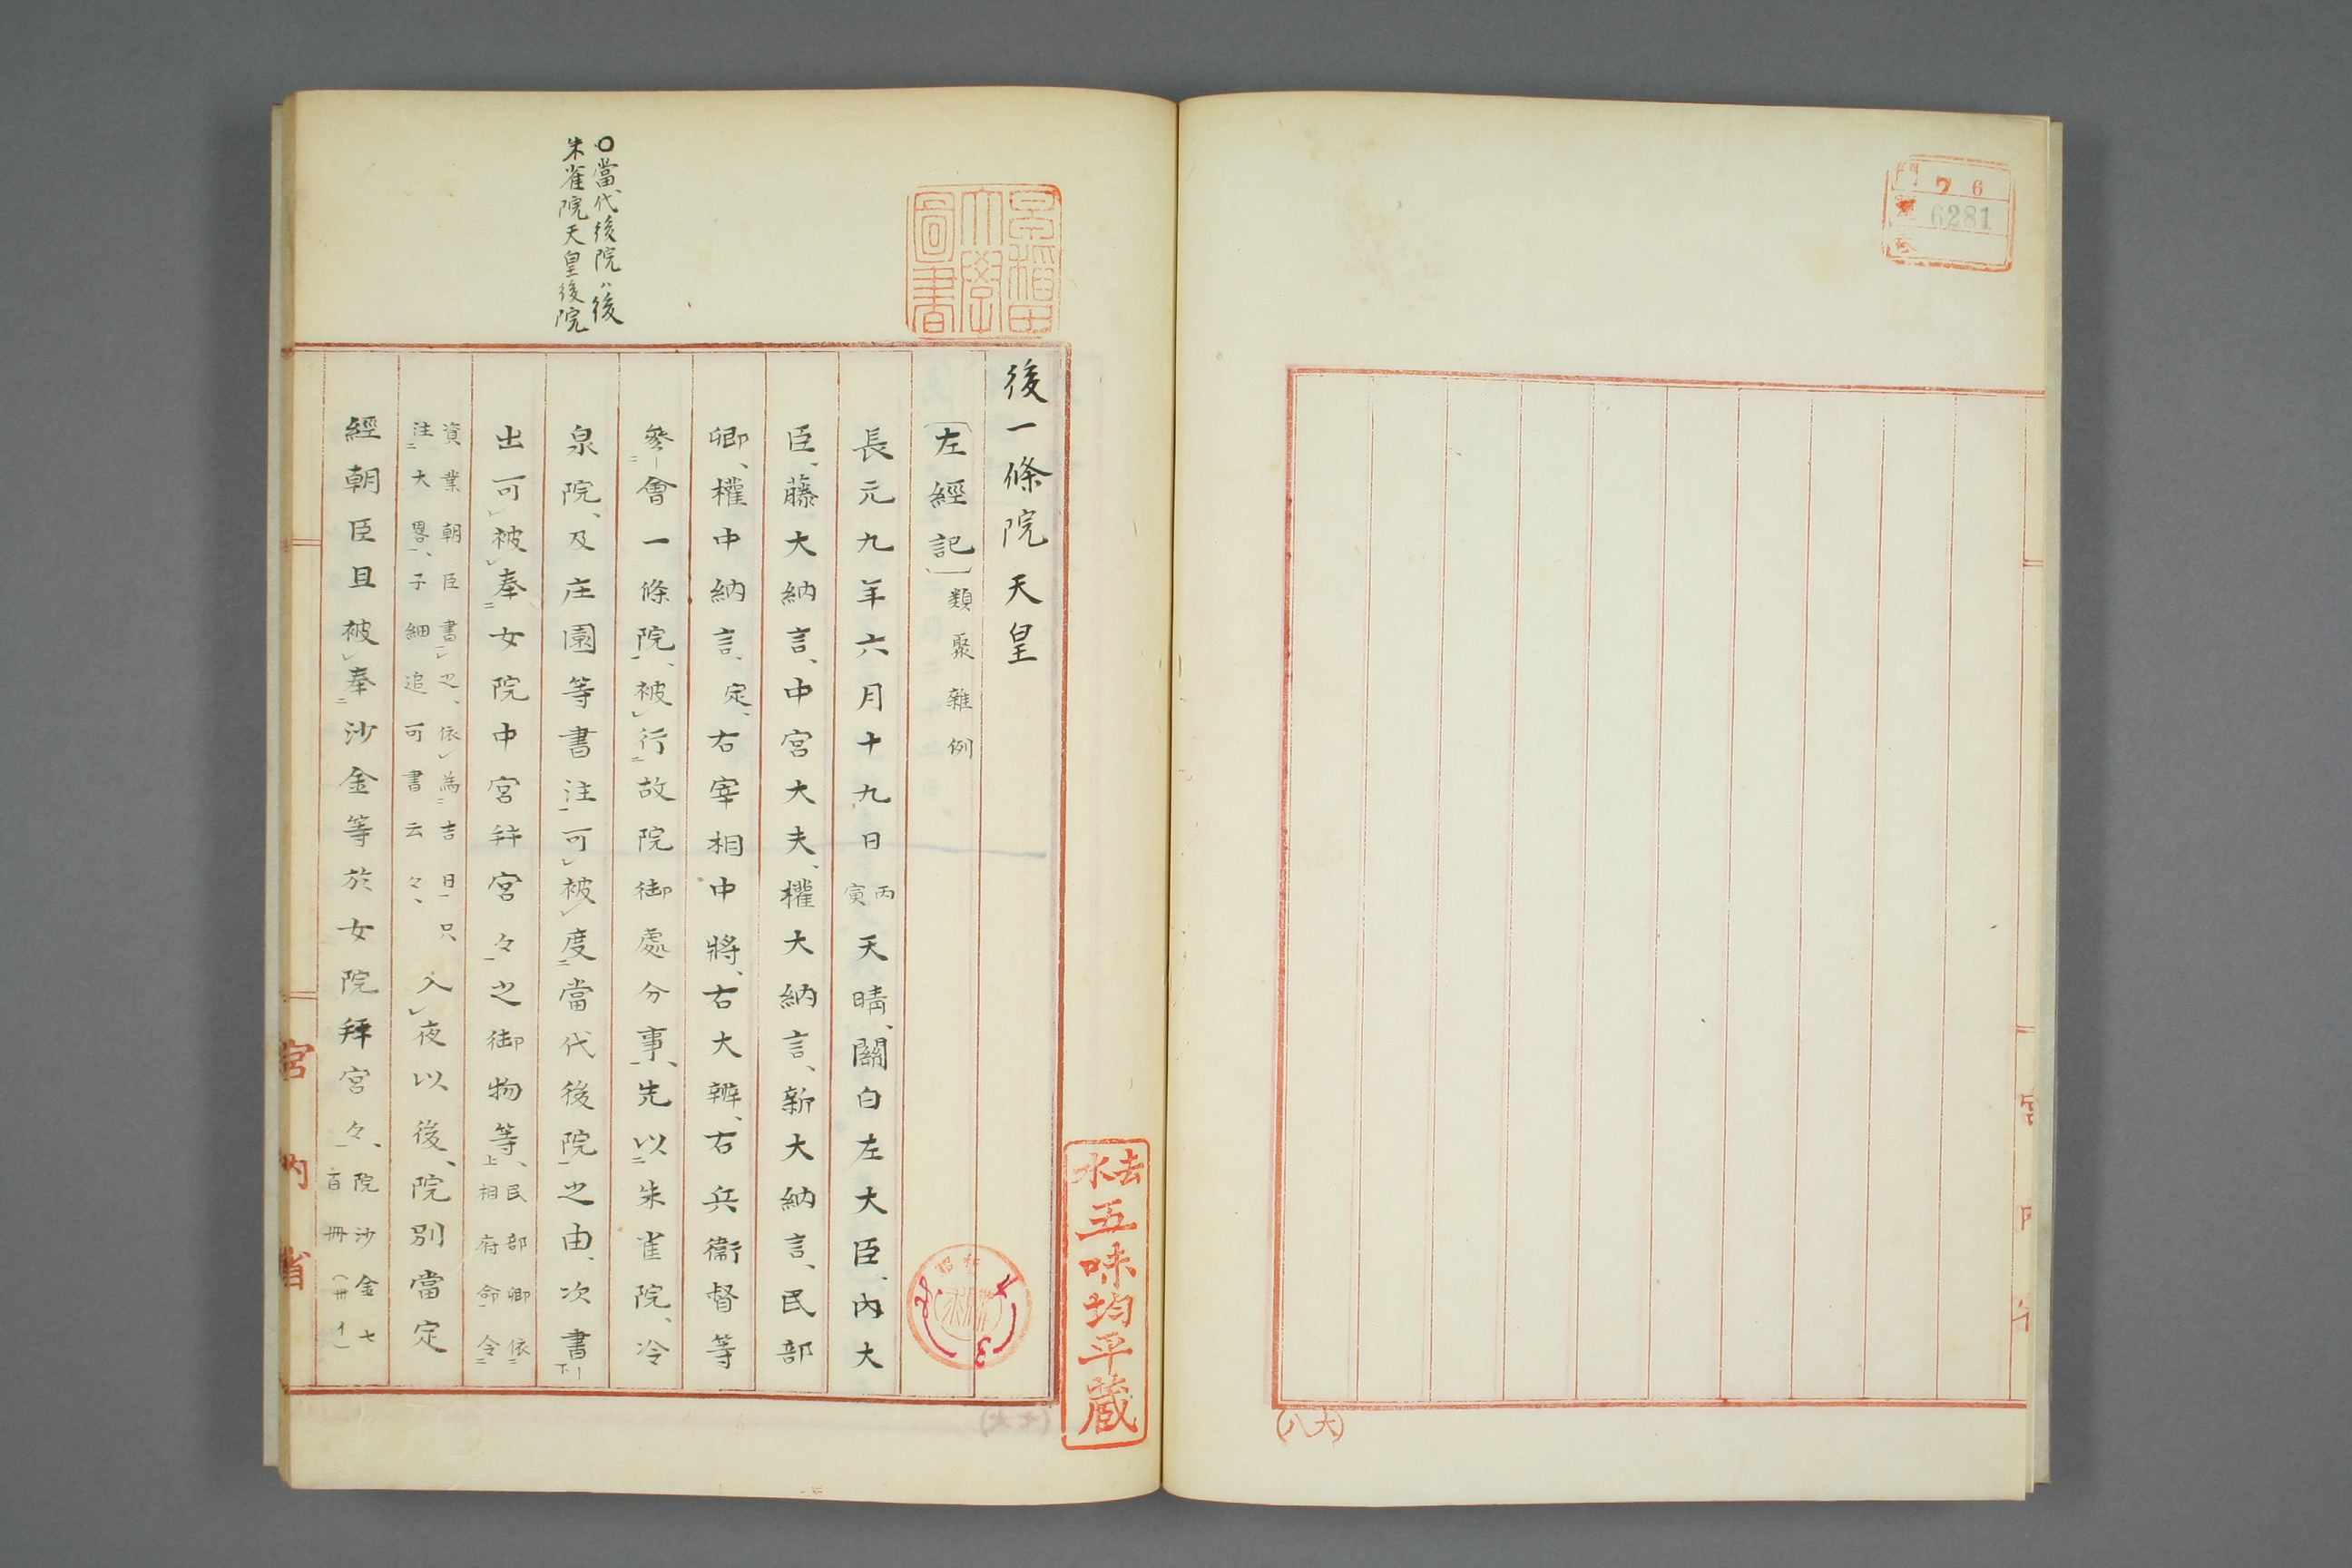 門
7 6
6281
(大八)
早稲田
大學
圖書
○當代後院ハ後
朱雀院天皇後院
後一條院天皇
〔左經記〕類聚雜例
長元九年六月十九日丙寅天晴、關白左大臣、內大
臣、藤大納言、中宮大夫、權大納言、新大納言、民部
卿、權中納言、定、右宰相中將、右大辨、右兵衞督等
參會一條院、被行故院御處分事、先以朱雀院、冷
泉院、及庄園等書注可被度當代後院之由、次書
出可被奉女院中宮幷宮々之御物等、民部卿依
相府命令
資業朝臣書之、依為吉日只
注大畧、子細追可書云々、
入夜以後、院別當定
經朝臣且被奉沙金等於女院拝宮々、院沙金七
百冊(卌イ)
宮內省
去水
五味均平蔵